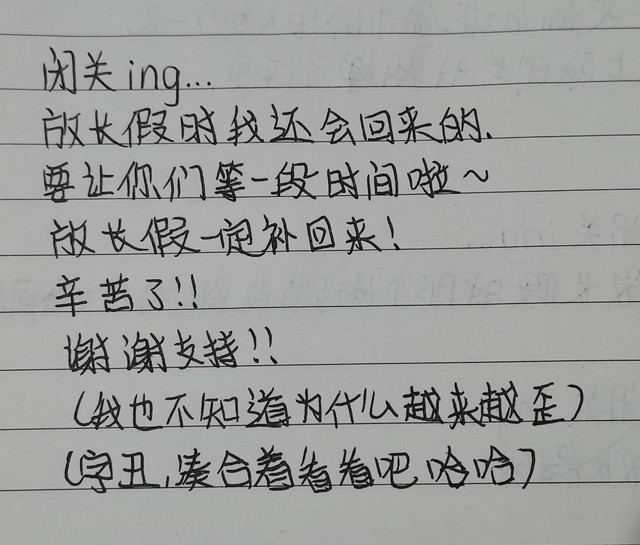 闭关ing...
放长假时我还会回来的.
要让你们等一段时间啦~
放长假一定补回来!
辛苦了!!
谢谢支持!!
(我也不知道为什么越来越歪)
(字丑,凑合着看看吧,哈哈)